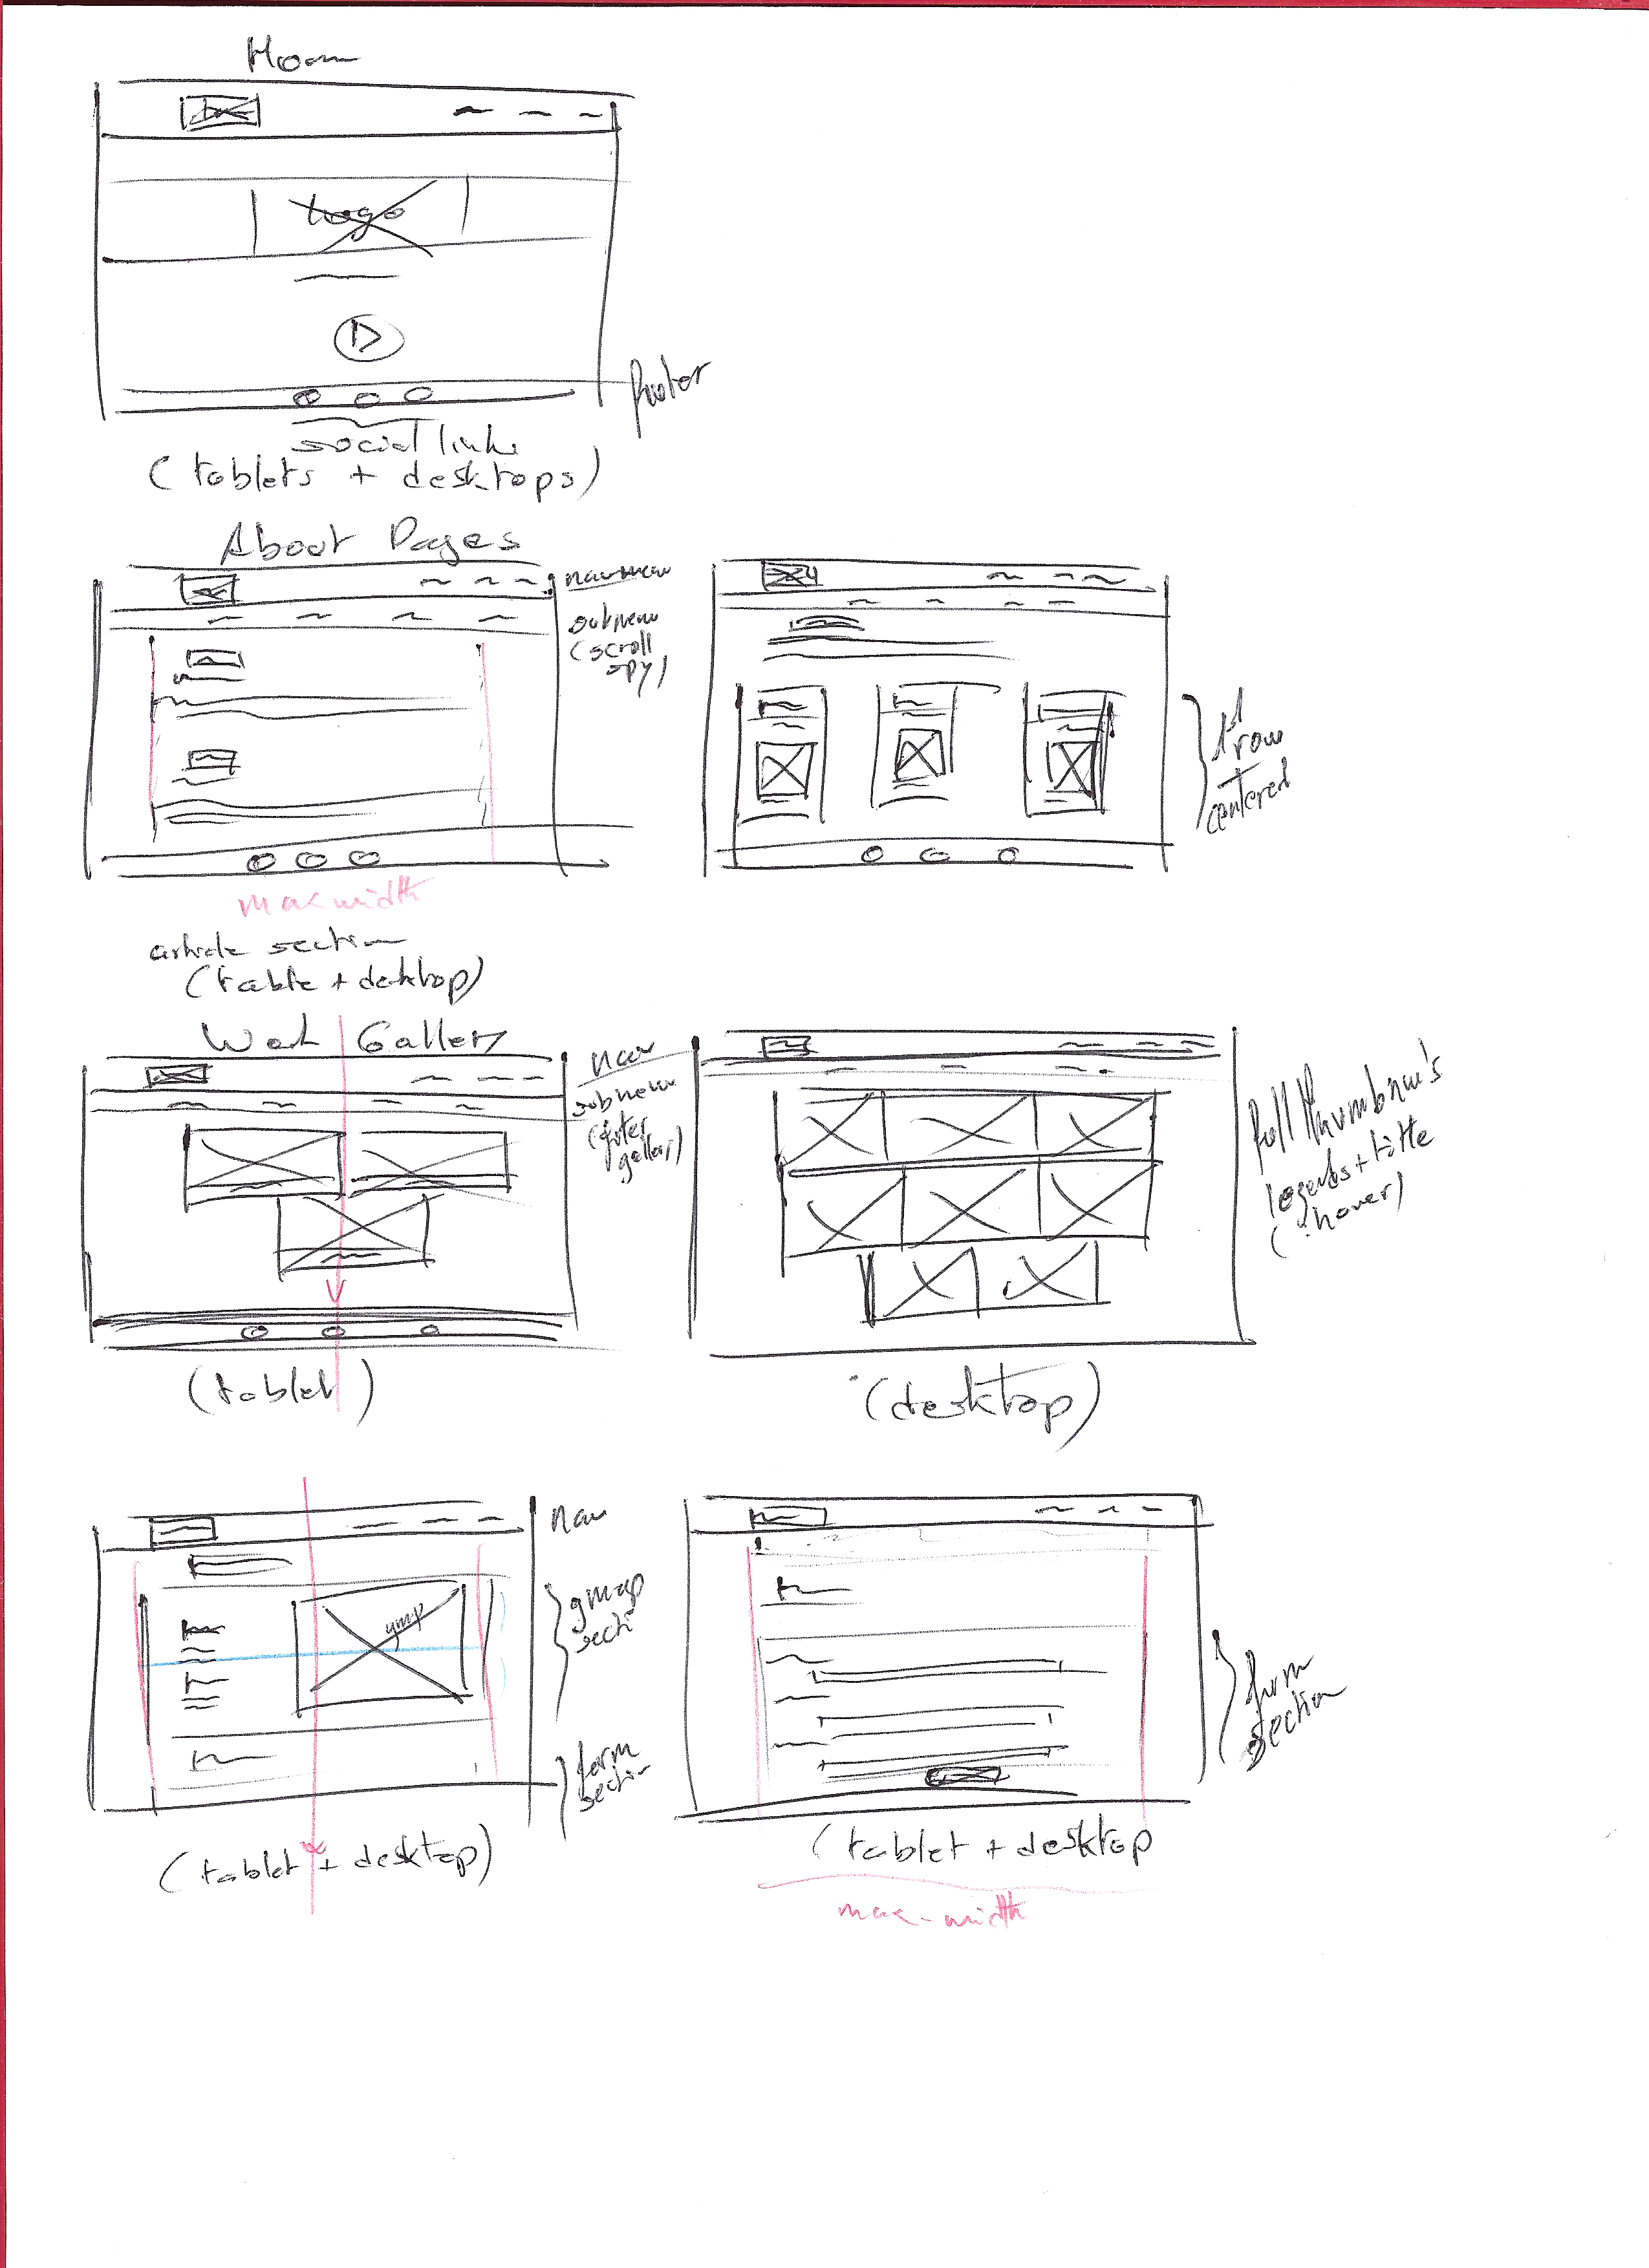 Home
logo
footer
social links
(tablets + desktops)
About Pages
submenu
(scroll
spy)
1st
row
centered
max width
article section
(table + desktop)
Work Gallery
nav
submenu
(filter
gallery)
full thumbnail's
legends + title
(:hover)
(tablet)
(desktop)
nav
gmap
section
gmap
form
section
form
section
(tablet + desktop)
(tablet + desktop
max-width